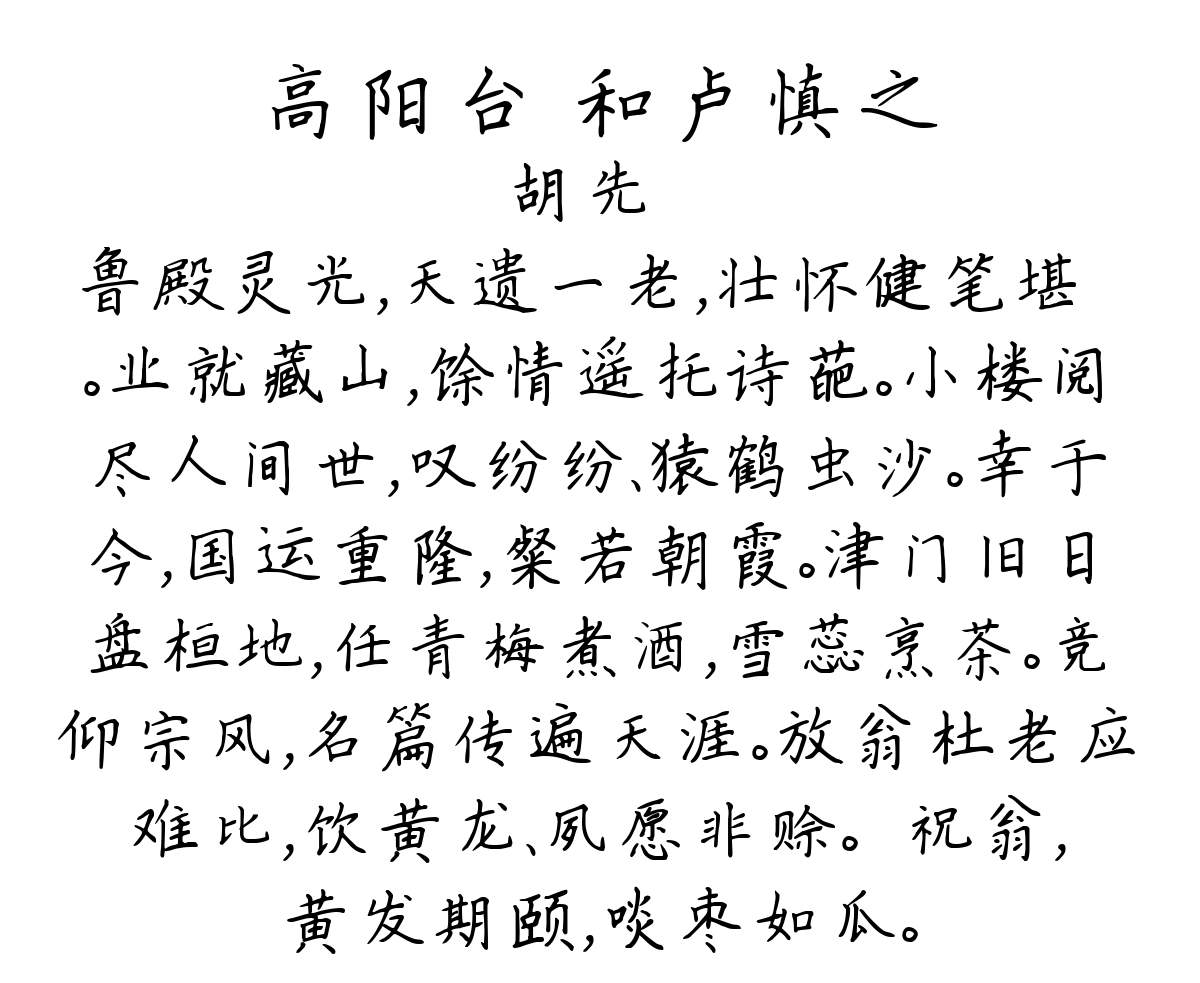 高阳台 和卢慎之
胡先
鲁殿灵光,天遗一老,壮怀健笔堪
。业就藏山,馀情遥托诗葩。小楼阅
尽人间世,叹纷纷、猿鹤虫沙。幸于
今,国运重隆,粲若朝霞。津门旧日
盘桓地,任青梅煮酒,雪蕊烹茶。竞
仰宗风,名篇传遍天涯。放翁杜老应
难比,饮黄龙、夙愿非赊。 祝翁,
黄发期颐,啖枣如瓜。